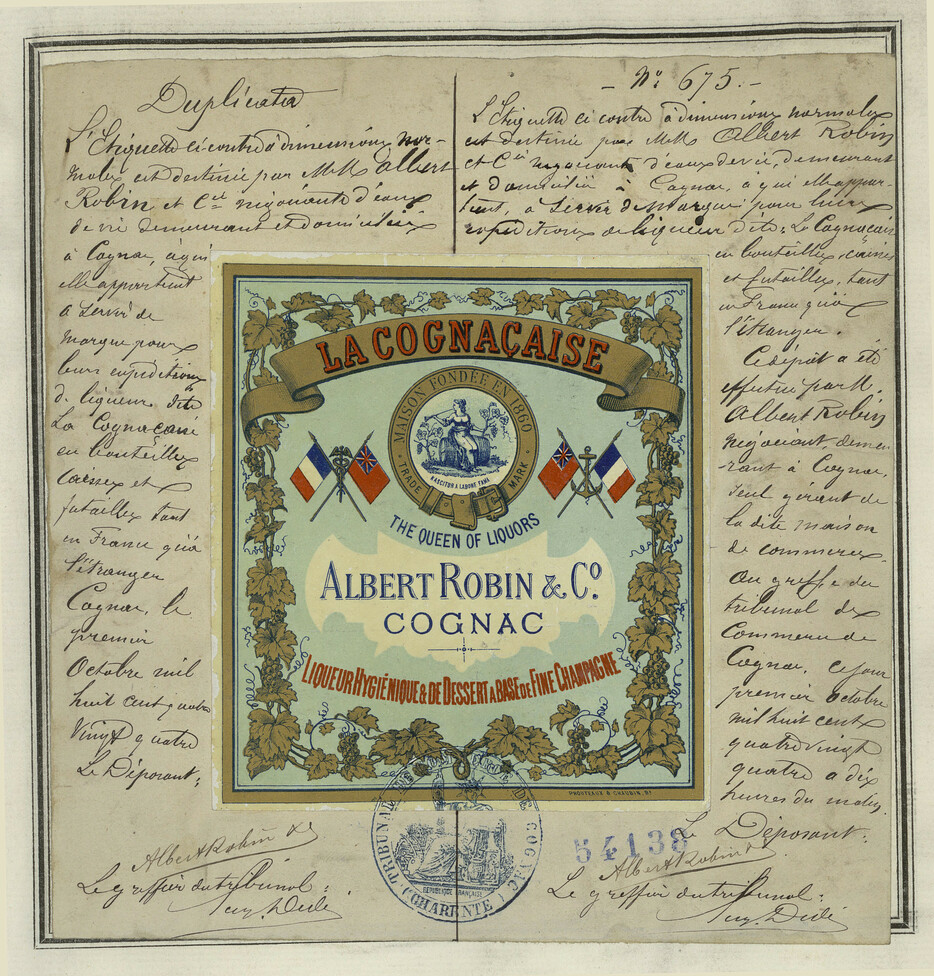 Duplicata
L'Etiquette ci contre à dimensions nor-
males est destinée par M.M. Albert
Robin et Cie négociants d'eaux
de vie demeurant et domiciliés
à Cognac, à qui
elle appartient
à servir de
marque pour
leurs expéditions
de liqueur dite
La Cognaçaise
en bouteilles
caisses et
futailles tant
en France qu'à
l'étranger
Cognac, le
premier
Octobre mil
huit cent quatre
Vingt quatre
Le Déposant:
Albert Robin &
Le greffier du tribunal:
- No: 675. -
L'Etiquette ci contre à dimensions normales
est destinée par M.M. Albert Robin
et Cie négociants d'eaux de vie, demeurant
et domiciliés à Cognac, à qui elle appar-
tient, à servir de marque pour leurs
expéditions de liqueur dite: La Cognaçaise
en bouteilles, caisses
et futailles, tant
en France qu'à
l'étranger.
Ce dépôt a été
effectué par M.
Albert Robin
négociant demeu-
rant à Cognac
seul gérant de
la dite maison
de commerce
au greffe du
tribunal de
Commerce de
Cognac, ce jour
premier octobre
mil huit cent
quatre vingt
quatre à dix
heures du matin
Le Déposant:
Albert Robin &
Le greffier du tribunal:
LA COGNAÇAISE
MAISON FONDÉE EN 1860
TRADE MARK
NASCITUR A LABORE FAMA
THE QUEEN OF LIQUORS
ALBERT ROBIN & Co.
COGNAC
LIQUEUR HYGIÉNIQUE & DE DESSERT A BASE DE FINE CHAMPAGNE
TRIBUNAL DE COGNAC
RÉPUBLIQUE FRANÇAISE
(CHARENTE)
54138